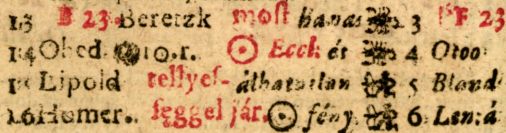 13 B 23. Beretzk most hamas 3 F 23
14 Obed. 10. r. Eccl. és 4 Otoo
15 Lipold tellyes- álhatatlan 5 Bland
16 Homer. séggel jár. fény 6 Len:á